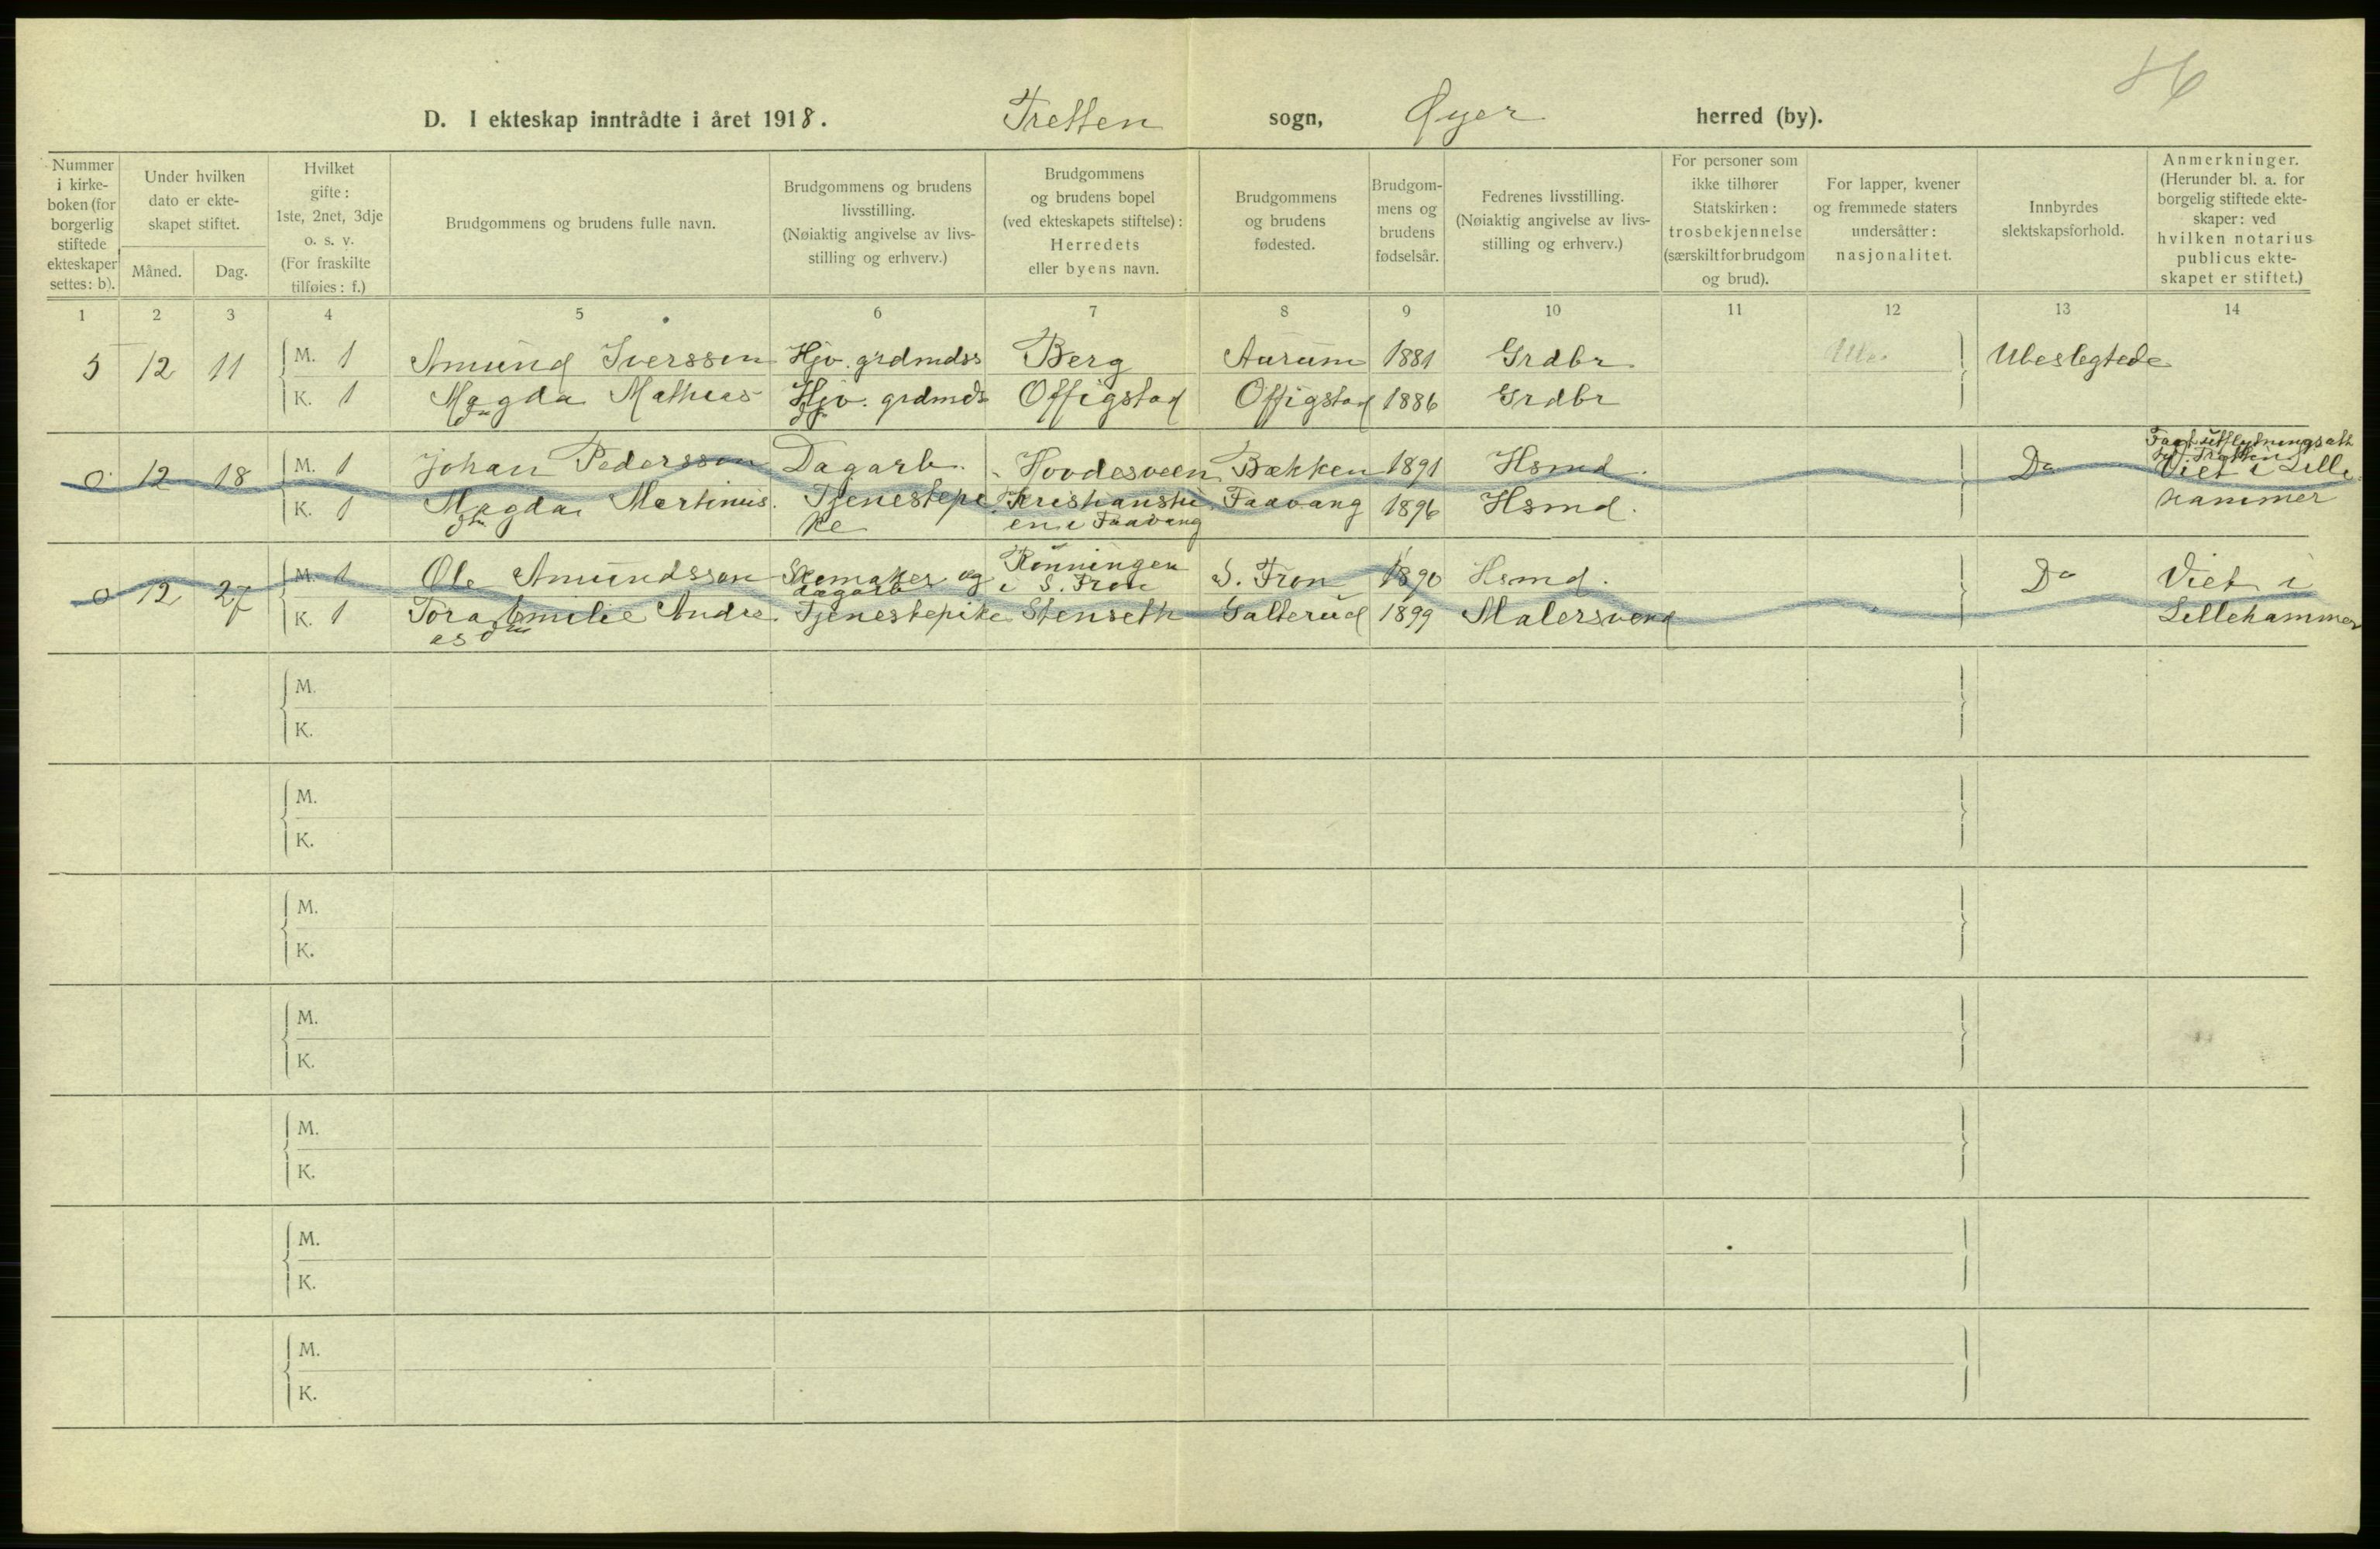 86
D. I ekteskap inntrådte i året 1918. Tretten sogn, Øyer herred (by).
Nummer i kirke- boken (for borgerlig stiftede ekteskaper settes: b).
Under hvilken dato er ekte- skapet stiftet.
Måned. Dag.
Hvilket gifte: 1ste, 2net, 3dje o. s. v. (For fraskilte tilføies: f.)
Brudgommens og brudens fulle navn.
Brudgommens og brudens livsstilling. (Nøiaktig angivelse av livs- stilling og erhverv.)
Brudgommens og brudens bopel (ved ekteskapets stiftelse): Herredets eller byens navn.
Brudgommens og brudens fødested.
Brudgom- mens og brudens fødselsår.
Fedrenes livsstilling. (Nøiaktig angivelse av livs- stilling og erhverv.)
For personer som ikke tilhører Statskirken: trosbekjennelse (særskilt for brudgom og brud).
For lapper, kvener og fremmede staters undersåtter: nasjonalitet.
Innbyrdes slektskapsforhold.
Anmerkninger. (Herunder bl. a. for borgelig stiftede ekte- skaper: ved hvilken notarius publicus ekte- skapet er stiftet.)
1 2 3 4 5 6 7 8 9 10 11 12 13 14
5 12 11 M. 1 Amund Iverssen Hjv. grdmdss Berg Aurum 1881 Grdbr. Ubeslegtede
K. 1 Magda Mathias- Hjv. grdmds Offigstad Offigstad 1886 Grdbr
dtr dtr
0 12 18 M. 1 Johan Pedersson Dagarb. Hovdesveen Bækken 1891 Hsmd. Do
Viet i Lille-
K. 1 Magda Martinus- Tjenestepi- Kristianstu- Faavang 1896 Hsmd. hammer
dtr ke en i Faavang
0 12 27 M. 1 Ole Amundsson Skomaker og Rönningen S. Fron 1890 Hsmd. Do Viet i
dagarb i S. Fron
K. 1 Tora Emilie Andre- Tjenestepike Stenseth Galterud 1899 Malersvend Lillehammer
as dtr
M.
K.
M.
K.
M.
K.
M.
K.
M.
K.
M.
K.
M.
K.